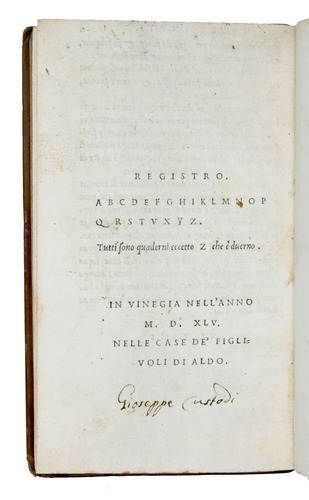 REGISTRO.
A B C D E F G H I K L M N O P
Q R S T V X Y Z.
Tutti sono quaderni eccetto Z che è duerno.
IN VINEGIA NELL'ANNO
M. D. XLV.
NELLE CASE DE' FIGLI-
VOLI DI ALDO.
Gioseppe Custodi